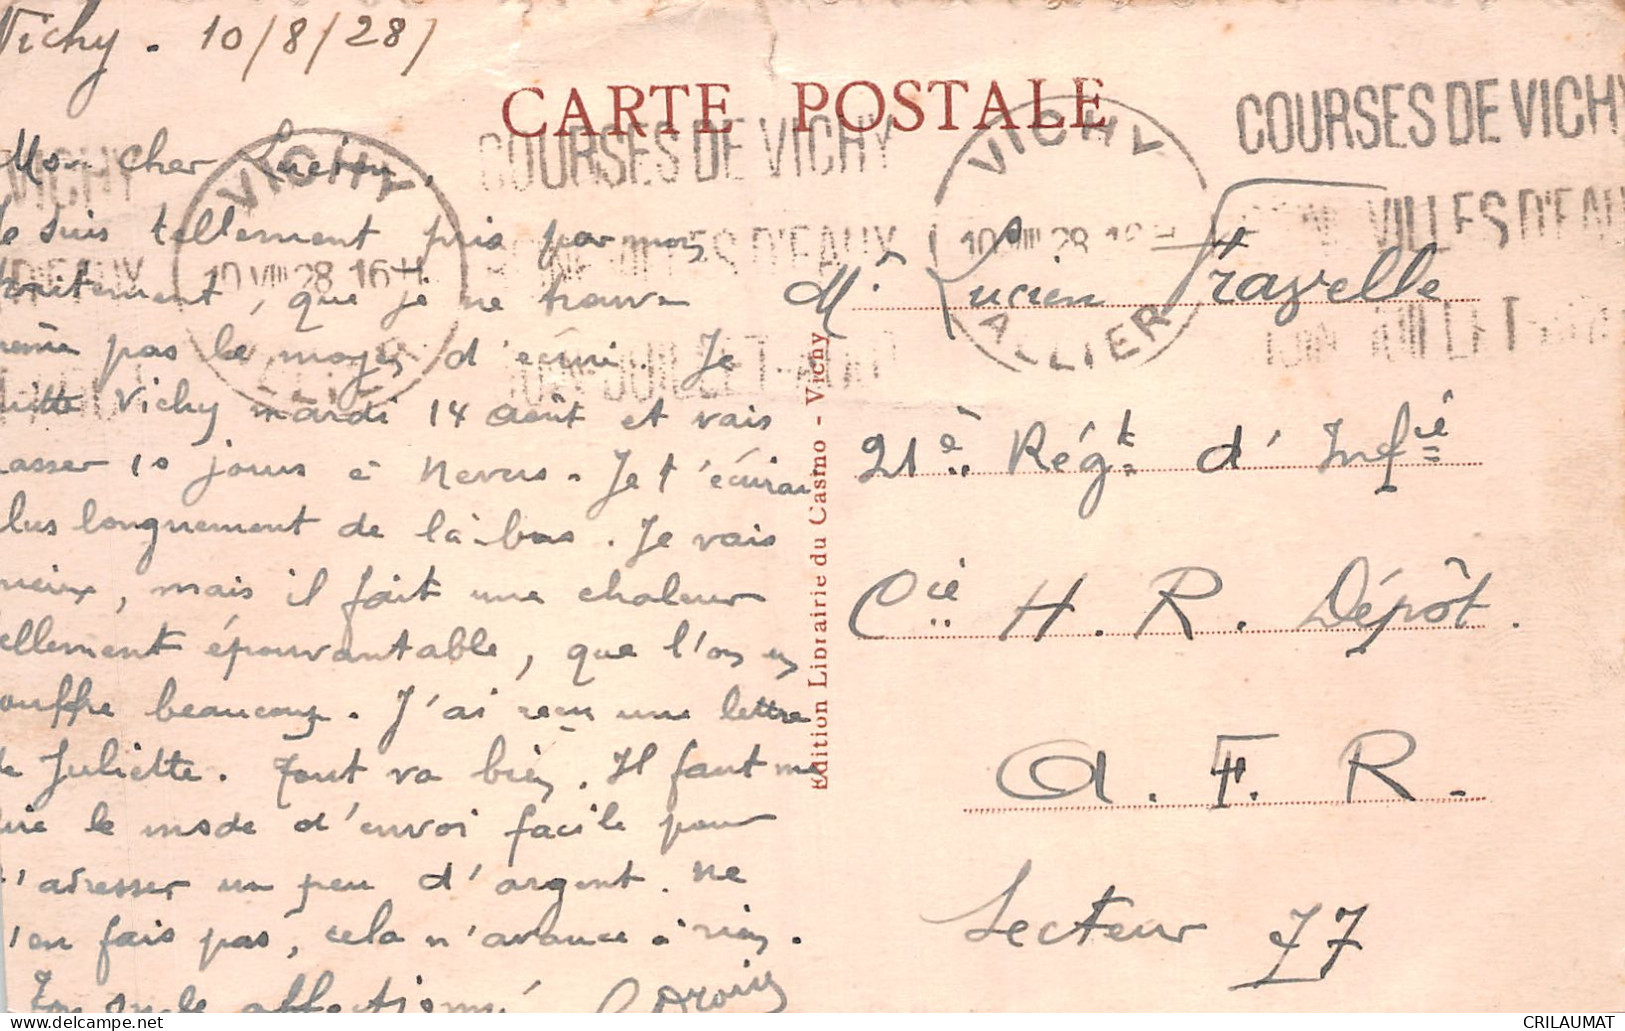 Vichy. 10/8/28/
CARTE POSTALE
COURSES DE VICHY
COURSES DE VICHY
VICHY
VICHY
VICHY
Mon cher Lucien,
Je suis tellement pris par mon
traitement, que je ne trouve
même pas le moyen d'écrire. Je
quitte Vichy mardi 14 août et vais
passer 10 jours à Nevers. Je t'écrirai
plus longuement de là-bas. Je vais
mieux, mais il fait une chaleur
tellement épouvantable, que l'on en
souffre beaucoup. J'ai reçu une lettre
de Juliette. Tout va bien. Il faut me
dire le mode d'envoi facile pour
t'adresser un peu d'argent. Ne
t'en fais pas, cela n'avance à rien.
Ton oncle affectionné
10 VIII 28 16 H
ALLIER
VILLES D'EAUX
JUILLET-AOUT
10 VIII 28
ALLIER
VILLES D'EAU
JUILLET
Edition Librairie du Casino - Vichy
Mr Lucien Fravelle
21è Régt d'Infie
Cie H. R. Dépôt.
A. F. R.
Secteur 77
CRILAUMAT